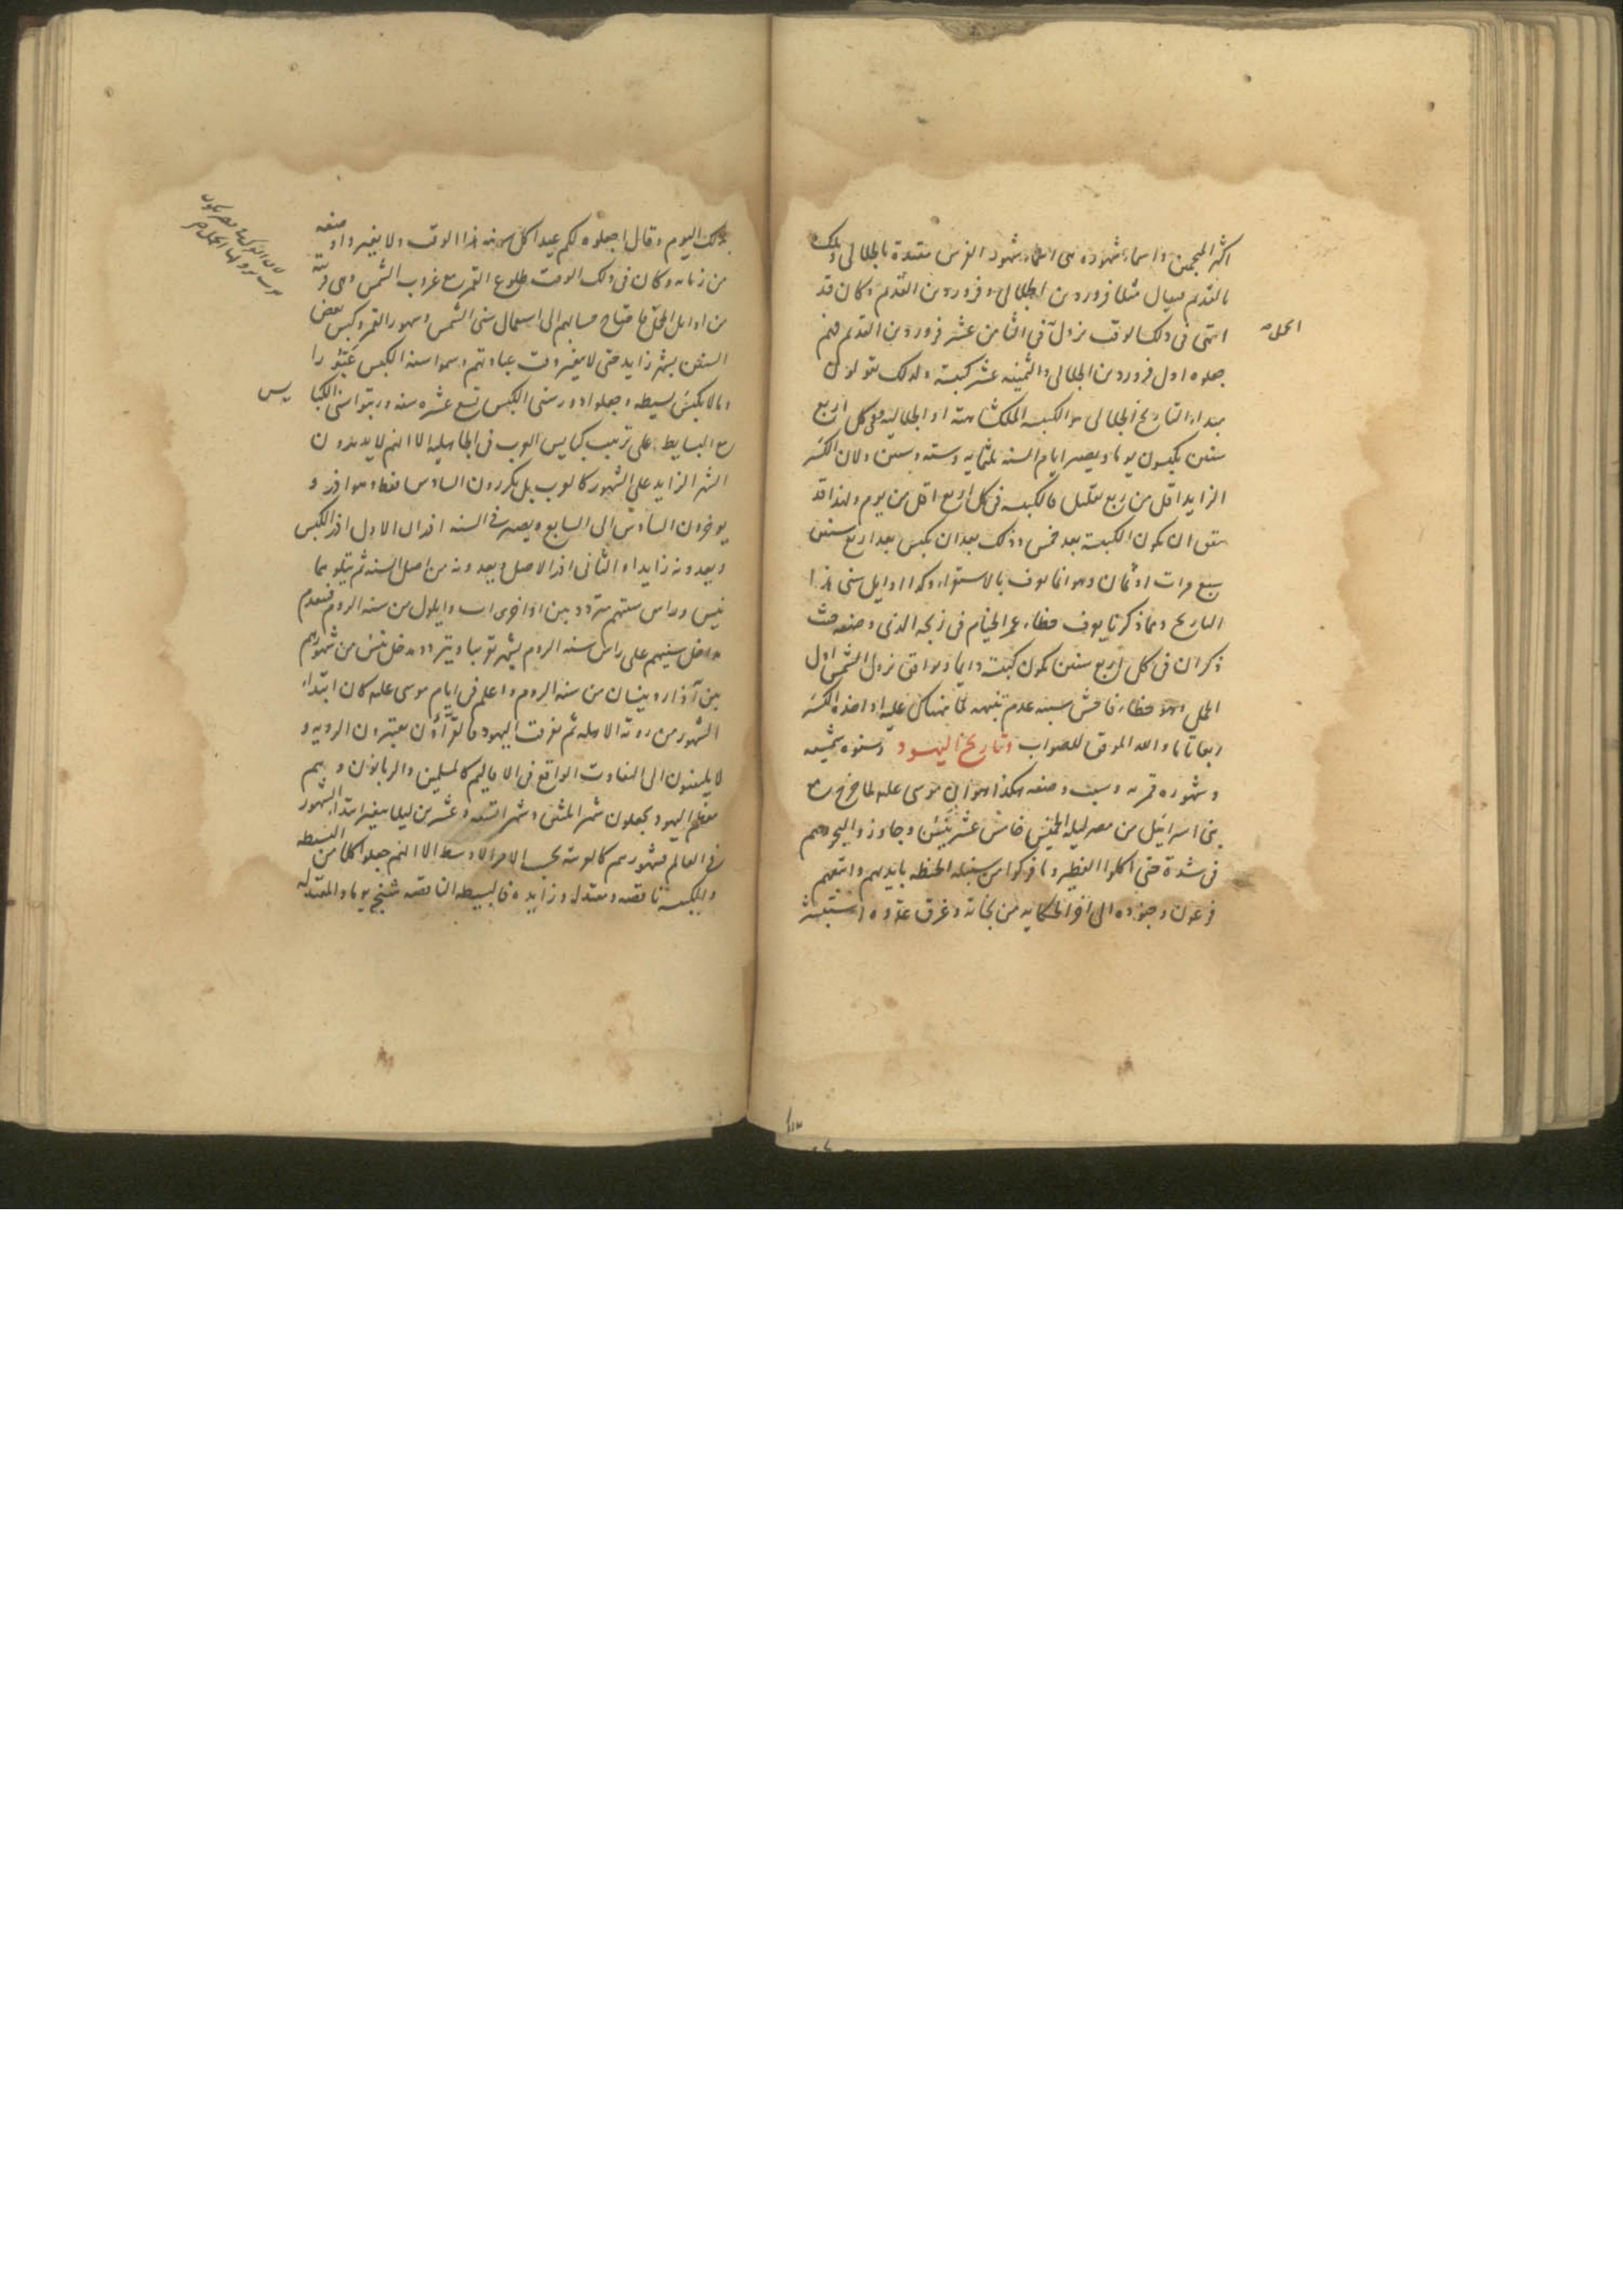 اكثر المنجمين واسماء شهوره هى اسماء شهور الفرس مقيدة بالجلالى وتلك
بالقديم فيقال مثلا فروردين الجلالى وفروردين القديم وكان قد
اتفق فى ذلك الوقت نزول فى الثامن عشر فروردين القديم فهم
الحمل
جعلوه اول فروردين الجلالى والثمنيه عشر كبيسة ولذلك يقولون
مبداء التاريخ الجلالى هو الكبيسة الملكشاهية او الجلاليه وفى كل اربع
سنين يكبسون يوما ويصير ايام السنه ثلثمايه وستة وستين ولان الكسر
الزايد اقل من ربع بقليل فالكبيسه فى كل اربع اقل من يوم ولهذا قد
يتفق ان يكون الكبيسة بعد خمس وذلك بعد ان يكبس بعد اربع سنين
سبع مرات او ثمان وهو انما يعرف بالاستقراء وكذا اوايل سنى هذا
التاريخ ومما ذكرنا يعرف خطاء عمر الخيام فى زيجه الذى وضعه حيث
ذكر ان فى كل اربع سنين يكون كبيسة دايما ويوافق نزول الشمس اول
الحمل وهو خطاء فاحش سببه عدم تنبهه لما نبهناك عليه او اخذه الكسر
ربعا تاما والله الموفق للصواب وتاريخ اليهود وسنوه شمسيه
وشهوره قمريه وسبب وضعه هكذا هو ان موسى عليه لما خرج مع
بنى اسرائيل من مصر ليله الخميس خامس عشر نيسن وجاوز واليم وهم
فى شدة حتى اكلوا الفطير وما فركوا من سنبله الحنطه بايديهم واتبعهم
فرعون وجنوده الى اخر الحكايه من نجاته وغرق عدوه استبشر
بذلك اليوم وقال اجعلوه لكم عيدا كل سنه هذا الوقت ولا يغيروا وضعه
من زمانه وكان فى ذلك الوقت طلوع القمر مع غروب الشمس وهى قريبة
من اوايل الحمل فاحتاج حسابهم الى استعمال سنى الشمس وشهور القمر وكبس بعض
السنين بشهر زايد حتى لا يتغير وقت عباداتهم وسموا سنة الكبس عبورا
وما لا يكبس بسيطه وجعلوا دور سنى الكبس تسع عشره سنه ورتبوا سنى الكبا
يس
مع البسايط على ترتيب كبايس العرب فى الجاهليه الا انهم لا يديرون
الشهر الزايد على الشهور كالعرب بل يكررون السادس فقط وهو اذر و
يوخرون السادس الى السابع ويصير فى السنه اذران الاول اذر الكبس
ويعدونه زايدا والثانى اذر الاصل ويعدونه من اصل السنه ثم يتلوهما
نيسن وراس سنتهم متردد بين اواخر اب وايلول من سنه الروم فيتقدم
مداخل سنيهم على راس سنه الروم بشهر تقريبا ويتردد مدخل نيسن من شهورهم
بين آذار ونيسان من سنه الروم واعلم فى ايام موسى عليه كان ابتداء
الشهور من رويه الاهله ثم تفرقت اليهود فالقرآؤن يعتبرون الرويه و
لا يلتفتون الى التفاوت الواقع فى الاقاليم كالمسلمين والربانون وهم
معظم اليهود يجعلون شهرا ثلثين وشهرا تسعه وعشرين ليلا يتغير ابتدا الشهور
فى العالم فشهورهم كالعربية بحسب الامر الاوسط الا انهم جعلوا كلا من البسيطه
والكبيسه ناقصه ومعتدله وزايده فالبسيطه الناقصه شنج يوما والمعتدله